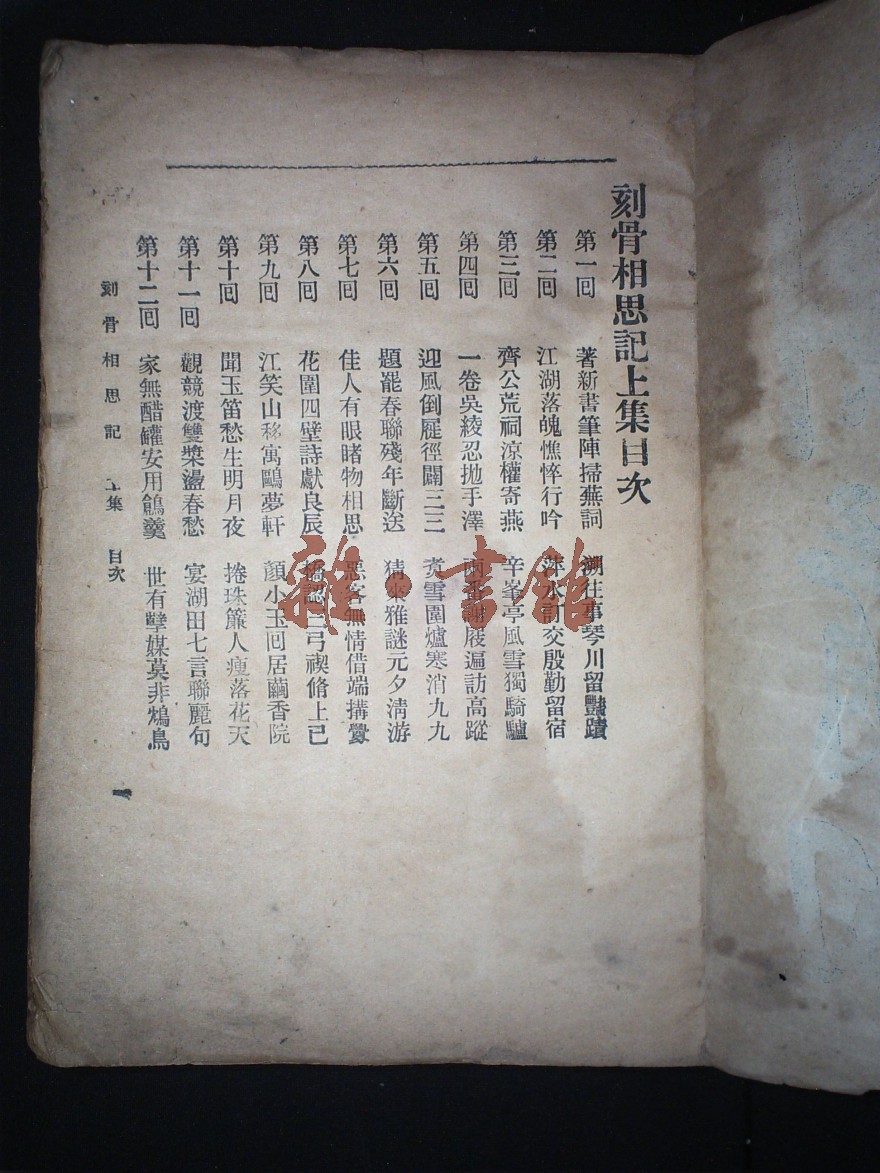 刻骨相思記上集目次
第一回 著新書筆陣掃蕪詞 溯往事琴川留豔蹟
第二回 江湖落魄憔悴行吟 萍水訂交殷勤留宿
第三回 齊公荒祠涼權寄燕 辛峯亭風雪獨騎驢
第四回 一卷吳綾忍拋手澤 兩番謝屐遍訪高蹤
第五回 迎風倒屣徑闢三三 煑雪圍爐寒消九九
第六回 題罷春聯殘年斷送 猜來雅謎元夕清游
第七回 佳人有眼睹物相思 惡客無情借端搆釁
第八回 花圍四壁詩獻良辰 橋認三弓禊脩上已
第九回 江笑山移寓鷗夢軒 顏小玉回居繭香院
第十回 聞玉笛愁生明月夜 捲珠簾人瘦落花天
第十一回 觀競渡雙槳盪春愁 宴湖田七言聯麗句
第十二回 家無醋罐安用鶬羹 世有孽媒莫非鴆鳥
刻骨相思記 上集 目次
一
雜·書館